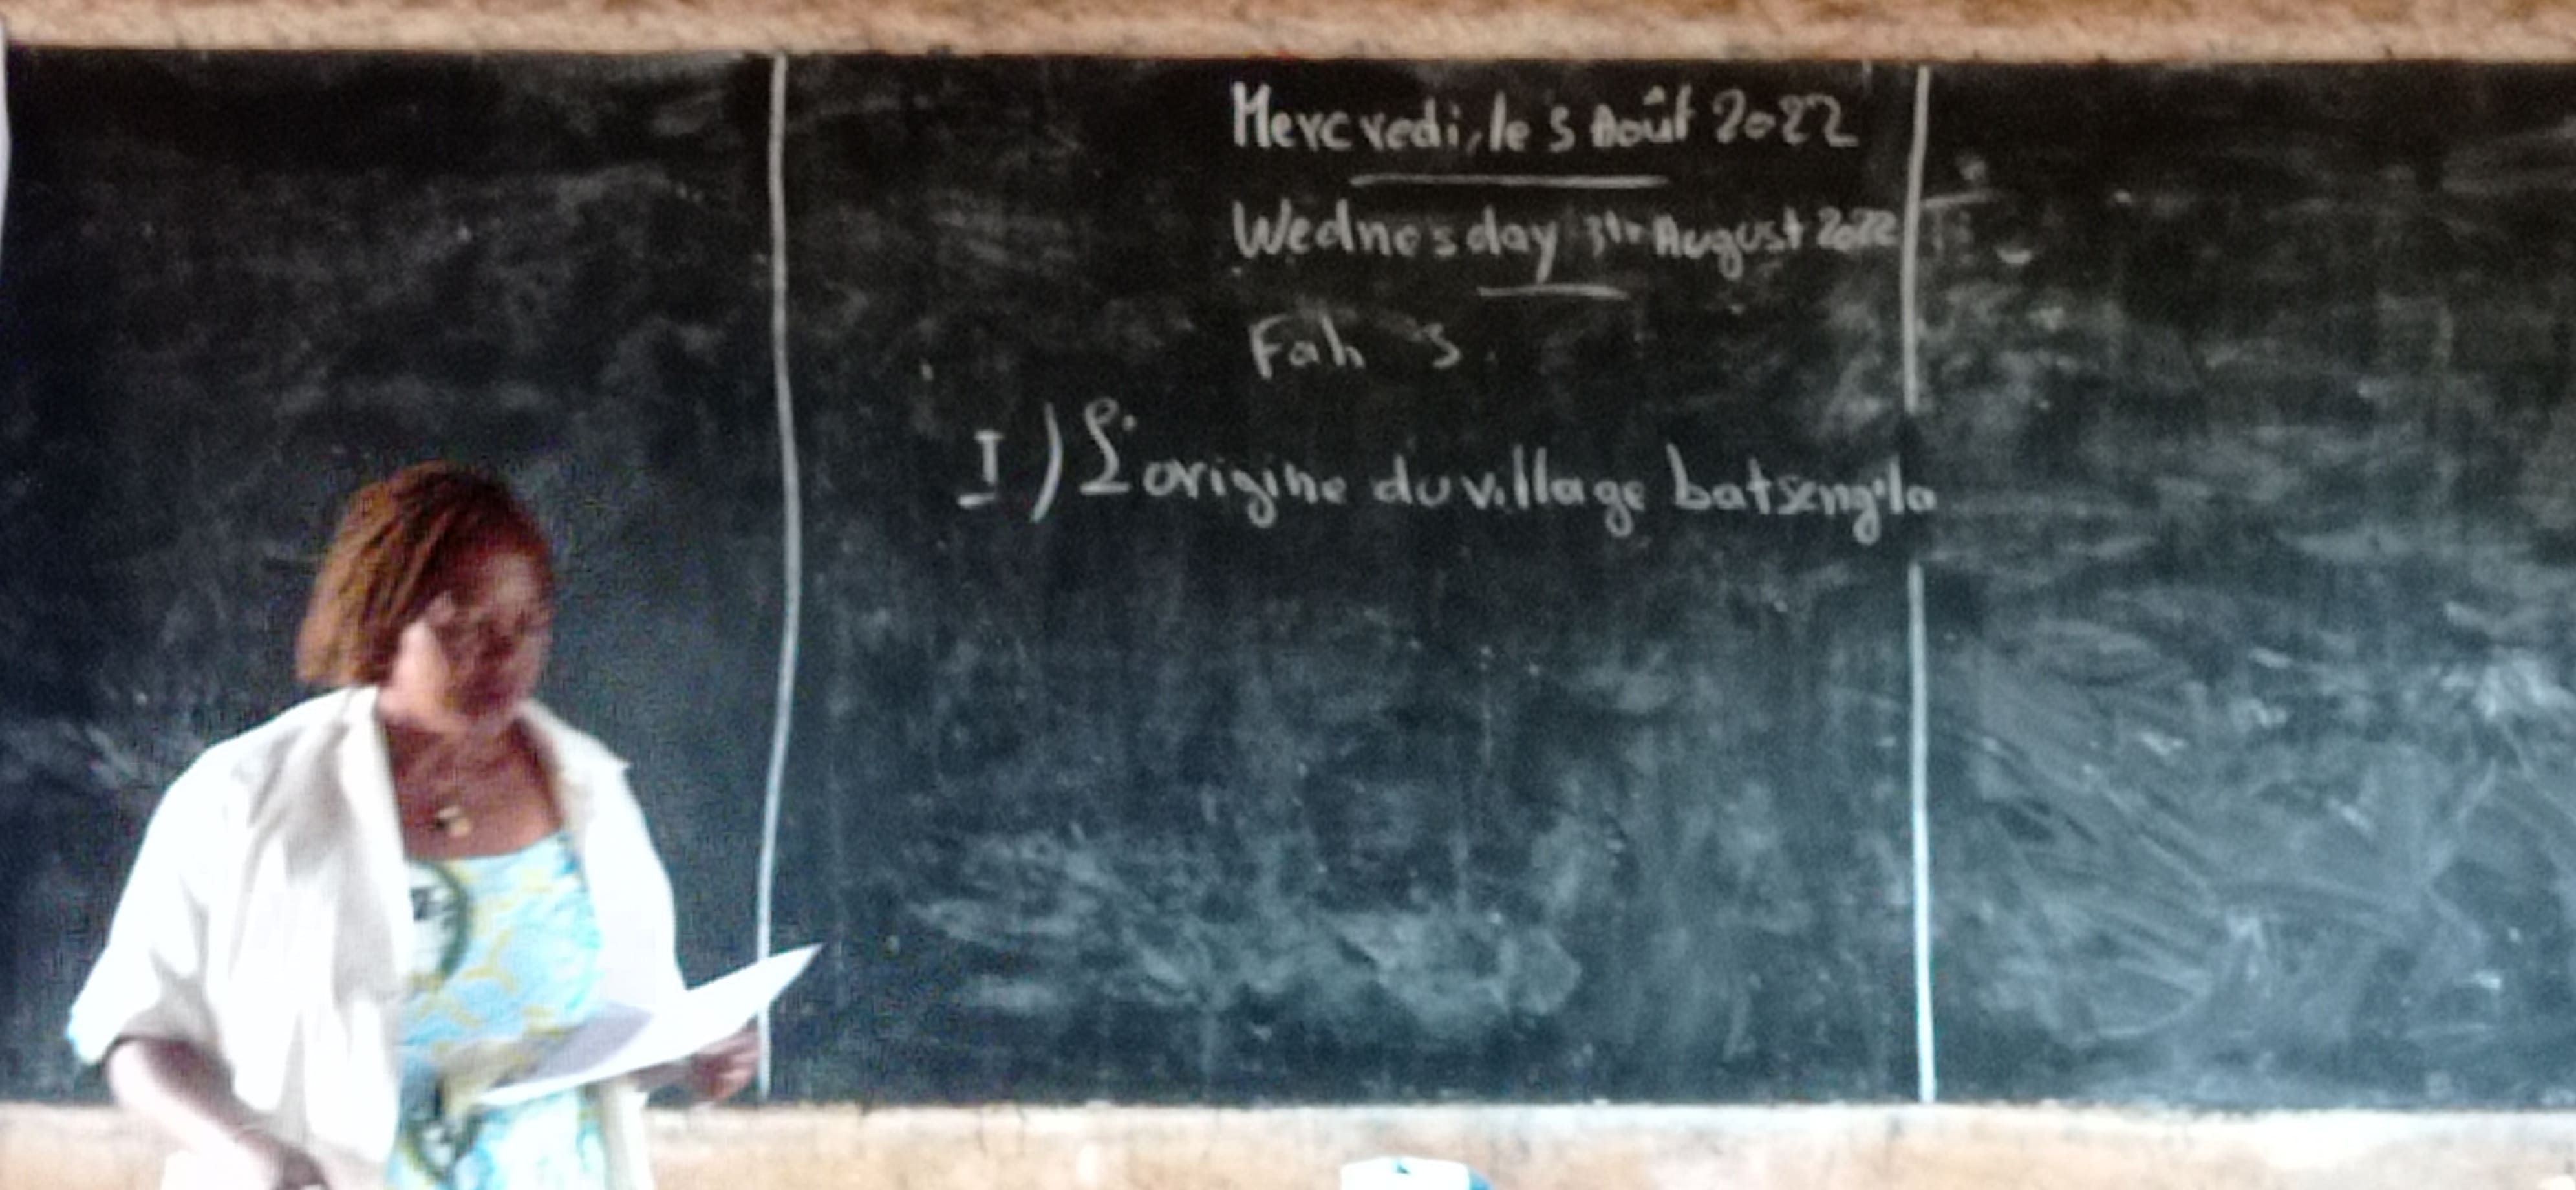 Mercredi, le 3 Août 2022
Wednesday 3th August 2022
Fah 3
I) L'origine du village batseng'la